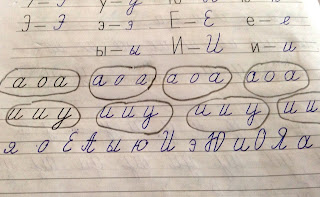 у – у
Э – Э э – э Е – Е е – е
ы – ы И – И и – и
а о а а о а а о а а о а
и и у и и у и и у и и
я о Е А ы ю И э Ю и О Я а